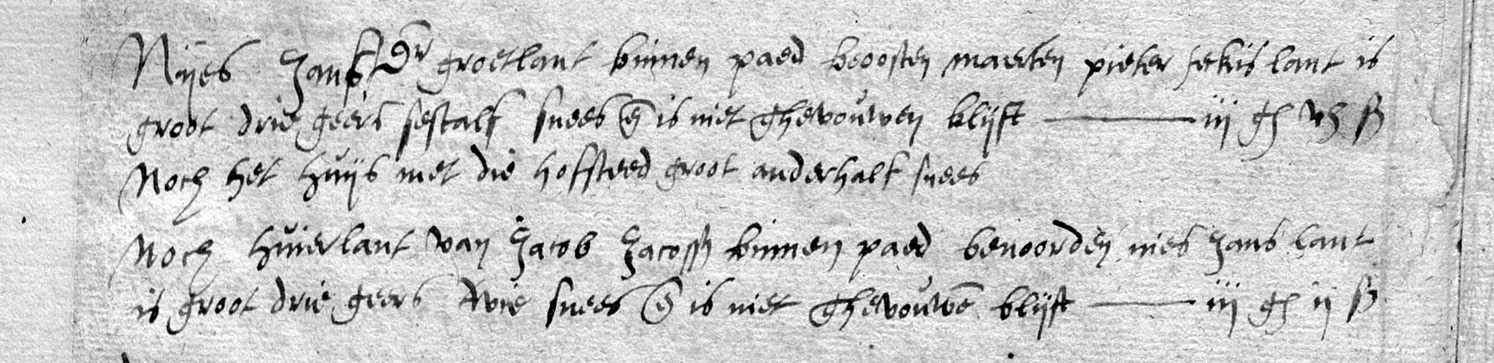 Niijes Jans Dr groetlant binnen paed beoosten maerten pieter feckis lant is
groot drie geers sestalf snees en is niet ghevouwen blijft iij gh vh ß
Noch het huijs met die hofsteed groot anderhalf snees
Noch huierlant van Jacob Jacossz binnen paed benoorden nies Jans lant
is groot drie geers twie snees en is niet ghevouwē blijft iij gh ij ß